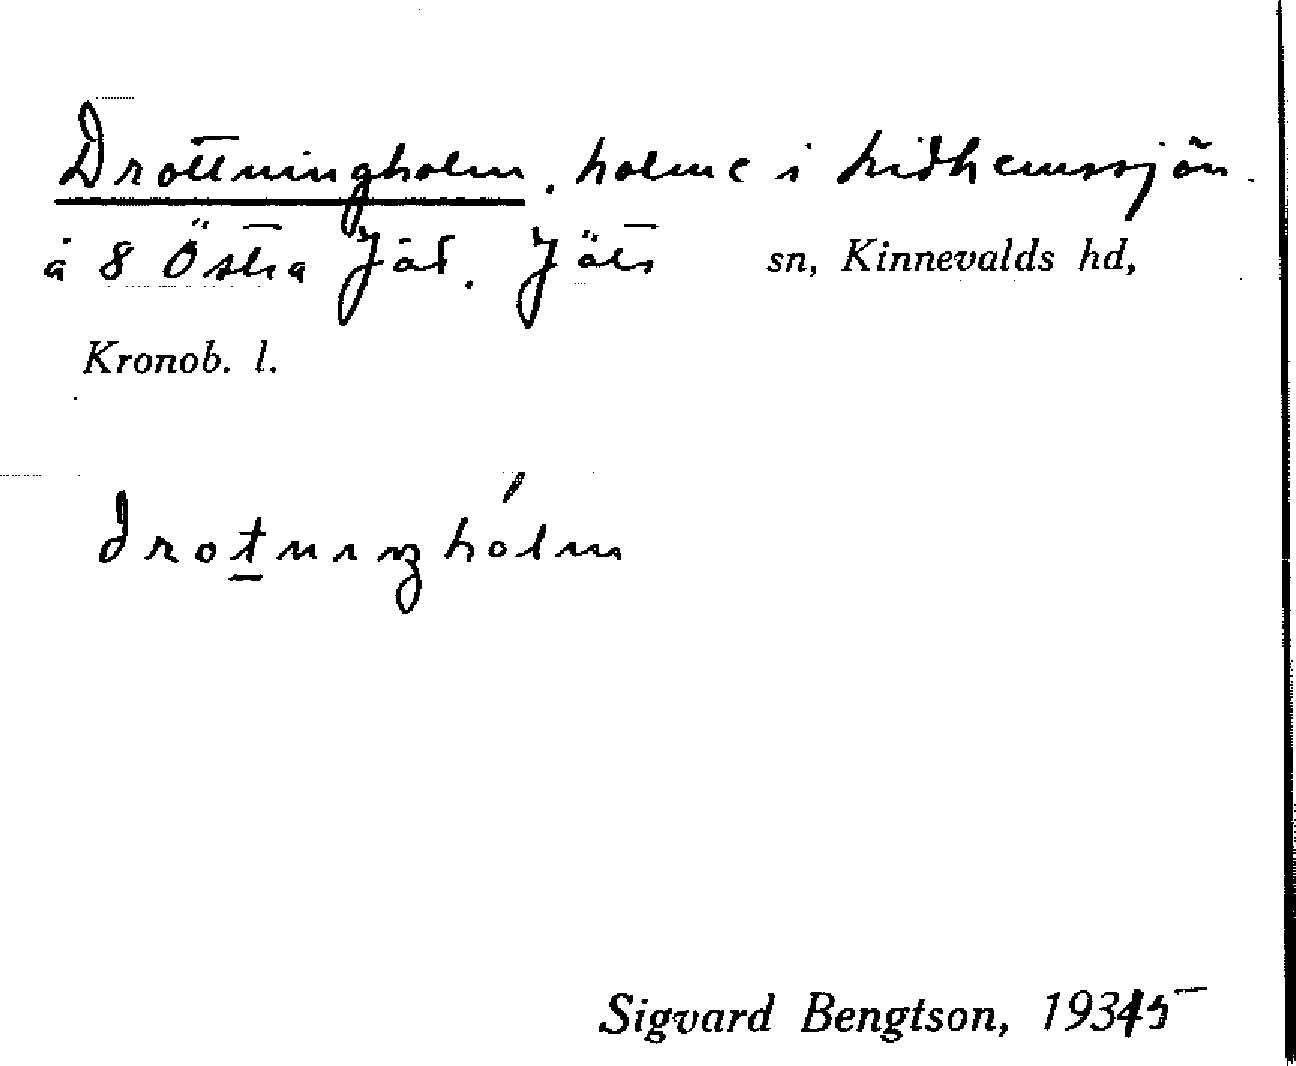 Drottningholm, holme i hidhemssjön
å 8 Östra Jät. Jäts sn, Kinnevalds hd,
Kronob. l.
drotnıŋhólm
Sigvard Bengtson, 1935